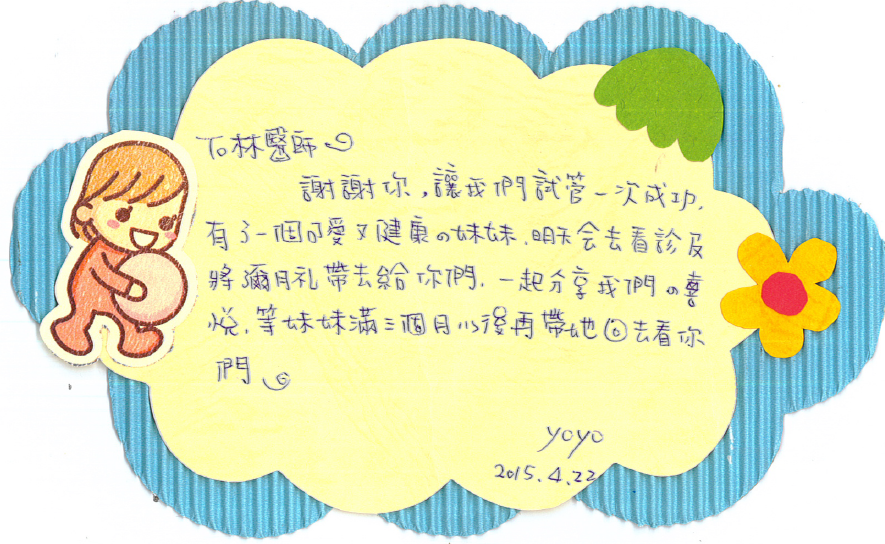 To林醫師
謝謝你,讓我們試管一次成功,
有了一個可愛又健康の妹妹,明天会去看診及
將彌月礼帶去給你們,一起分享我們の喜
悅,等妹妹滿三個月以後再帶她回去看你
們。
yoyo
2015.4.22